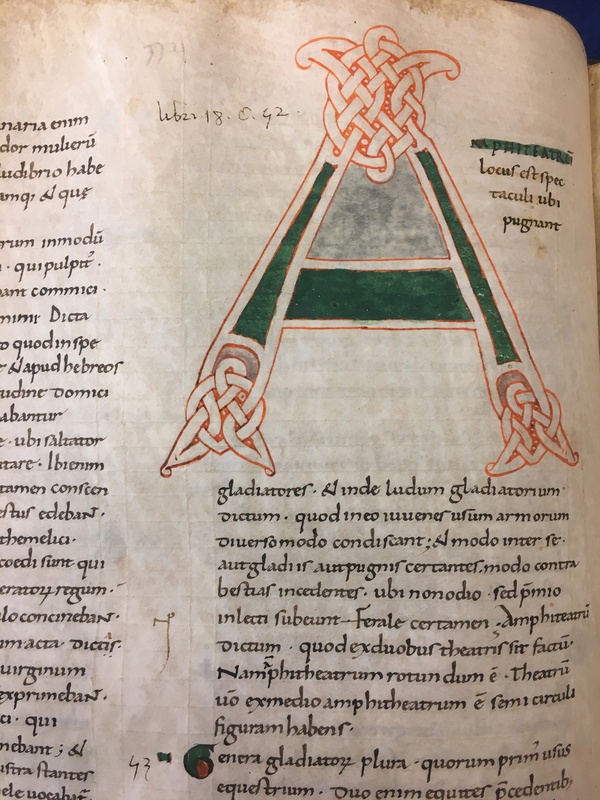 naria enim
dor mulierū
ludibrio habe
amq; & quę
rum inmodū
· qui pulpit̄ ·
bant commici ·
mimi Dicta
o quod in spe
e & apud hebreos
udine domici
abantur
e · ubi saltator
tare · Ibi enim
tamen conscen
estus edebaN ·
themelici ·
coedi sunt qui
eratoꝝ regum ·
lo concinebaN ·
im acta · dictis ·
uirginum
exprimebaN ·
ci · qui
nebant ; &
ustra stantes
ele uocabat̄
libri 18 · C · 42 ·
A
APHITEATRŪ
locus est spec
taculi ubi
pugnant
gladiatores · & inde ludum gladiatorium
dictum · quod in eo iuuenes usum armorum
diuerso modo condiscant ; & modo inter se ·
aut gladiis aut pugnis certantes, modo contra
bestias incedentes · ubi non odio · sed p̄mio
inlecti subeunt Ferale certamen · Amphiteatrū
dictum · quod ex duobus theatris sit factū ·
Nam amphitheatrum rotundum ē · Theatrū
uō ex medio amphitheatrum ē semicirculi
figuram habens ·
43
Genera gladiatoꝝ plura · quorum primū usus
equestrium · Duo enim equites p̄cedentib;